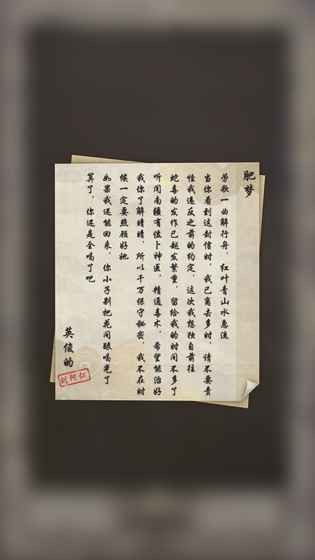 肥梦
劳歌一曲解行舟，红叶青山水急流
当你看到这封信时，我已离去多时，请不要责
怪我违反之前的约定，这次我想独自前往
蛇毒的发作已越发繁重，留给我的时间不多了
听闻南疆有位卜神医，精通毒术，希望能治好
我你了解晴晴，所以千万保守秘密，我不在时
候一定要照顾好她
如果我还能回来，你小子别把花间眼喝光了
算了，你还是全喝了吧
英俊的
刘阿仁